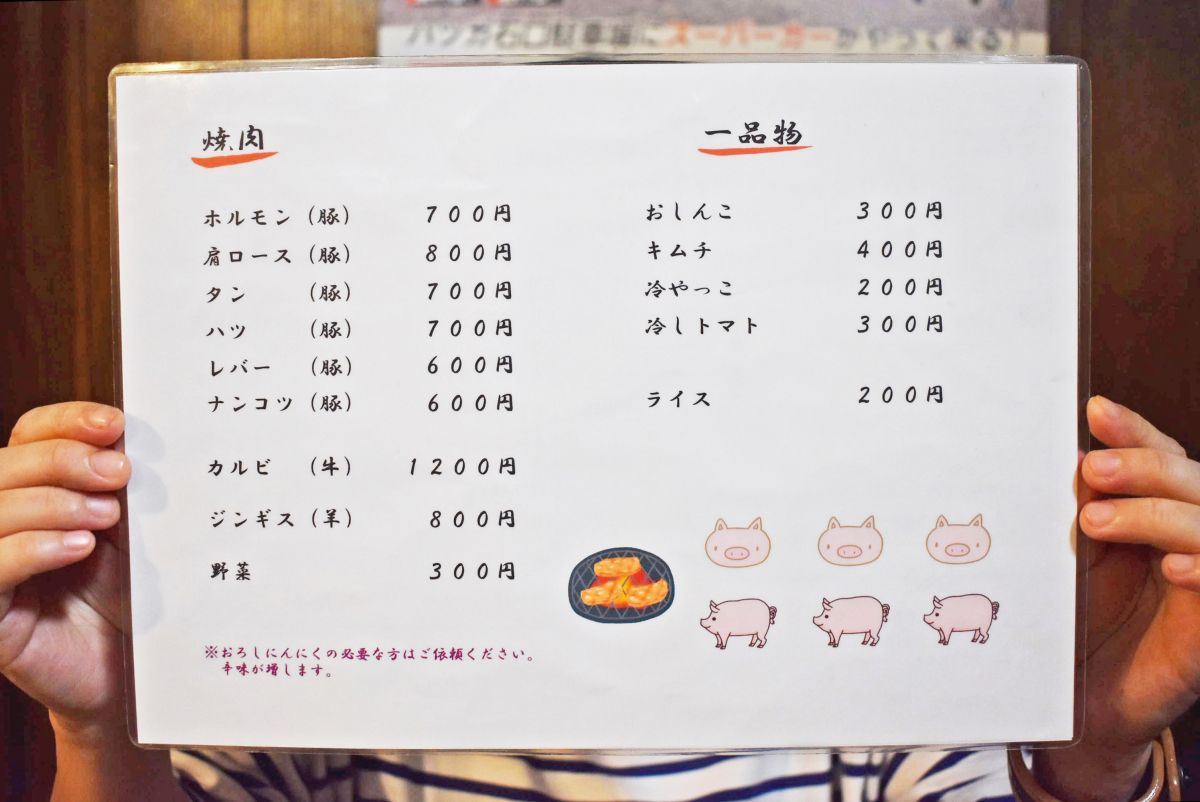 スーパーカーがやって来る!
焼肉
ホルモン(豚) 700円
肩ロース(豚) 800円
タン (豚) 700円
ハツ (豚) 700円
レバー (豚) 600円
ナンコツ(豚) 600円
カルビ (牛) 1200円
ジンギス(羊) 800円
野菜 300円
※おろしにんにくの必要な方はご依頼ください。
辛味が増します。
一品物
おしんこ 300円
キムチ 400円
冷やっこ 200円
冷しトマト 300円
ライス 200円